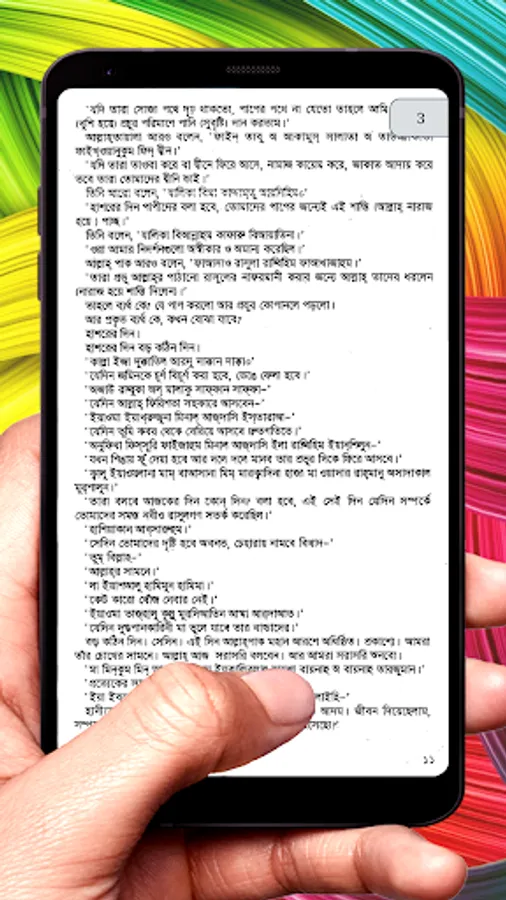 3
‘যদি তারা সোজা পথে দৃঢ় থাকতো, পাপের পথে না যেতো তাহলে আমি
(খুশি হয়ে) প্রচুর পরিমাণে পানি (সুবৃষ্টি) দান করতাম।’
আল্লাহ্‌তায়ালা আরও বলেন, ‘ফাইন্ তাবু অ আকামুস্ সালাতা অ
ফাইখ্ওয়ানুকুম ফিদ্ দ্বীন।’
‘যদি তারা তাওবা করে বা দ্বীনে ফিরে আসে, নামাজ কায়েম করে, জাকাত আদায় করে
তবে তারা তোমাদের দ্বীনি ভাই।’
তিনি আরো বলেন, ‘যালিকা বিমা
‘হাশরের দিন পাপীদের বলা হবে, তোমাদের পাপের জন্যেই এই শাস্তি (আল্লাহ্ নারাজ
হয়ে) পাচ্ছ।’
তিনি বলেন, ‘যালিকা বিআন্নাহুম কাফারু বিআয়াতিনা।’
‘ওরা আমার নিদর্শনগুলো অস্বীকার ও অমান্য করেছিল।’
আল্লাহ্ পাক আরও বলেন, ‘ফাআসাও রাসুলা রাব্বিহিম ফাআখাজাহুম।’
‘তারা প্রভু আল্লাহ্‌র পাঠানো রাসুলের নাফরমানী করার জন্যে আল্লাহ্ তাদের ধরলেন
(নারাজ হয়ে শাস্তি দিলেন)।’
তাহলে ব্যর্থ কে? যে পাপ করলো আর প্রভুর কোপানলে পড়লো।
আর প্রকৃত ব্যর্থ কে, কখন বোঝা যাবে?
হাশরের দিন।
হাশরের দিন বড় কঠিন দিন।
‘কাল্লা ইজা দুক্কাতিল আরদু দাক্কান দাক্কা।’
‘যেদিন জমিনকে চূর্ণ বিচূর্ণ করা হবে, ভেঙে ফেলা হবে।’
‘অজাউ রাব্বুকা অল্ মালাকু সাফ্ফান সাফ্ফা–’
‘যেদিন আল্লাহ্ ফিরিশতা সহকারে আসবেন–’
‘ইয়াওমা ইয়াখ্‌রুজুনা মিনাল্ আজ্‌দাসি
‘যেদিন তুমি কবর থেকে বেরিয়ে আসবে দ্রুতগতিতে।’
মিনাল আজ্‌দাসি ইলা রাব্বিহিম ইয়ানসিলুন–’
‘যখন শিঙায় ফুঁ দেয়া হবে আর দলে দলে মানব তার প্রভুর দিকে ফিরে আসবে।’
মাম্ বাআসানা মিম্ মারক্বাদিনা হাজা মা ওয়াদার রাহ্‌মানু অসাদাকাল
মুরসালুন।’
‘তারা বলবে আজকের দিন কোন্ দিন? বলা হবে, এই সেই দিন যেদিন সম্পর্কে
তোমাদের সমস্ত নবীও রাসুলগণ সতর্ক করেছিল।’
‘হাশিয়াতান আব্‌সারুহুম।’
‘সেদিন তোমাদের দৃষ্টি হবে অবনত, চেহারায় নামবে বিষাদ–’
‘আল্লাহ্‌র সামনে।’
‘লা ইয়াসআলু হামিমুন হামিমা।’
‘কেউ কারো খোঁজ নেবার নেই।’
‘ইয়াওমা তাজ্‌হালু কুল্লু মুরদিআতিন আম্মা আরদাআত।’
‘যেদিন দুগ্ধপানকারিনী মা ভুলে যাবে তার বাচ্চাদের।’
বড় কঠিন দিন। সেদিন। এই দিন আল্লাহ্‌পাক মহান আরশে অধিষ্ঠিত। প্রকাশ্যে। আমরা
তাঁর চোখের সামনে। আল্লাহ্ আজ সরাসরি বলবেন। আর আমরা সরাসরি শুনবো।
‘মা মিনকুম মিন্ বায়নাহু অ বায়নাহু তারজুমান।’
‘প্রত্যেকের
‘ইয়া
আদম। জীবন দিয়েছেলাম,
১১